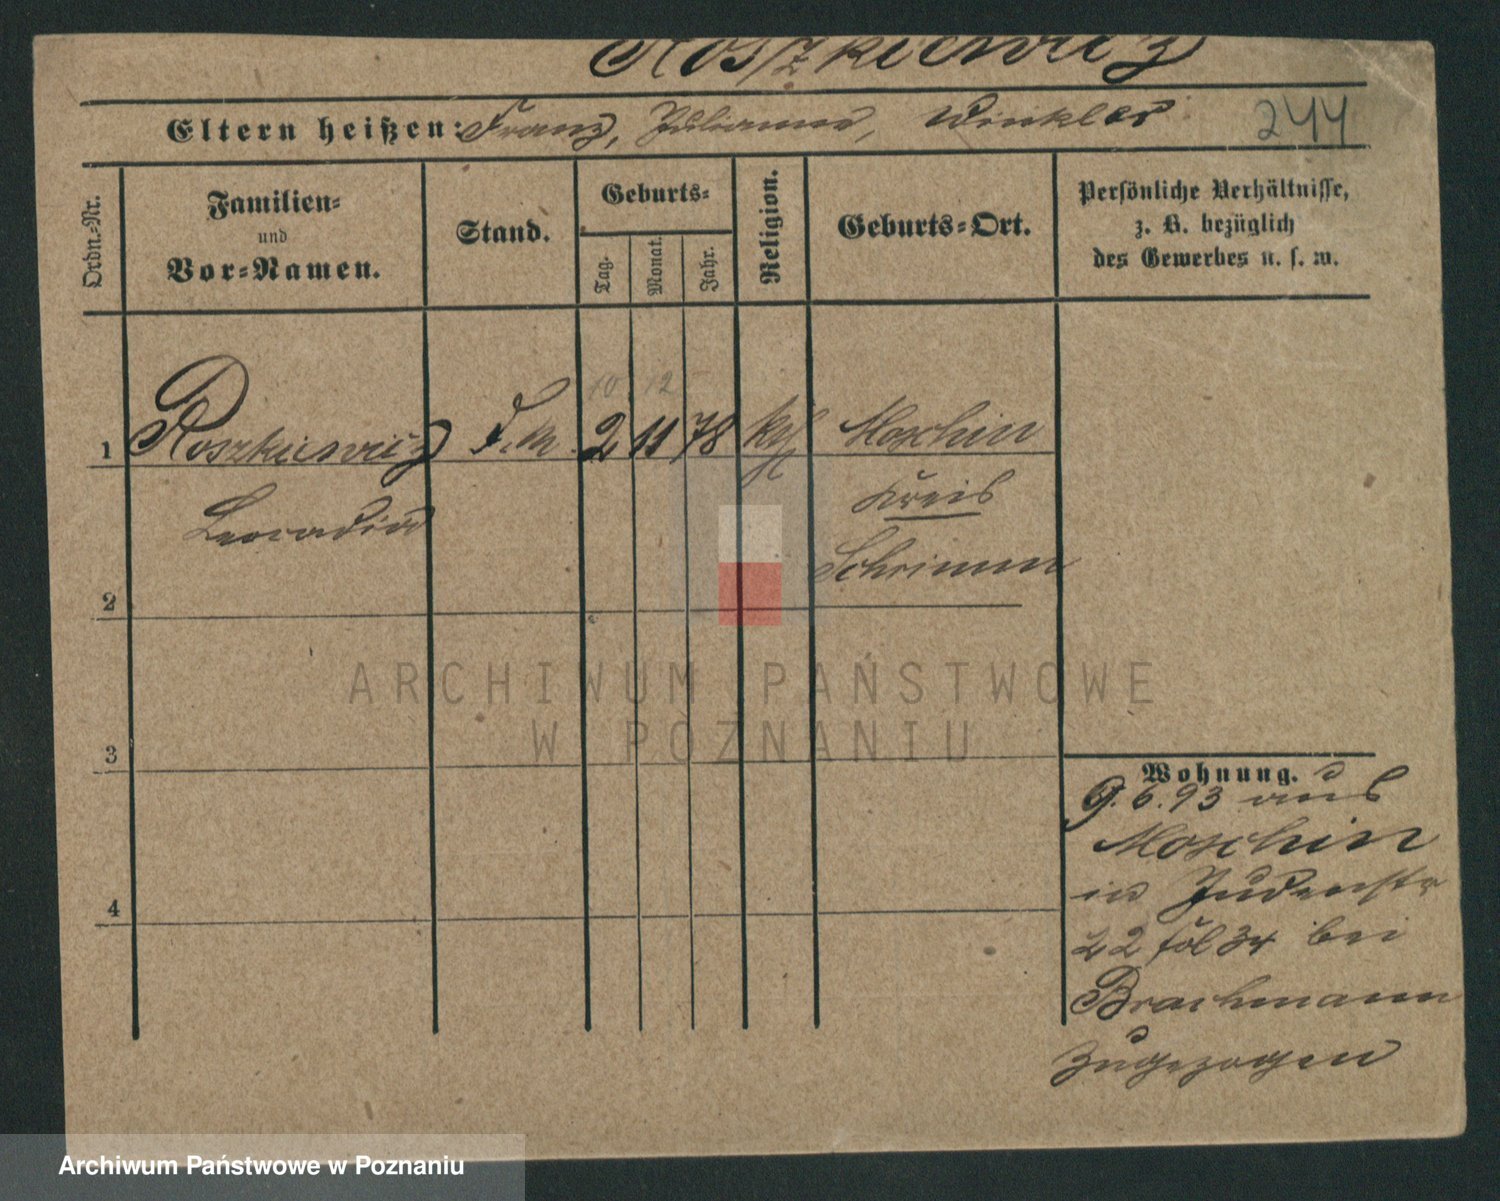 Roszkiewicz
Eltern heißen: Franz, Julianna, Winkler
244
Ordn.-Nr.
Familien-
und
Vor-Namen.
Stand.
Geburts-
Tag.
Monat.
Jahr.
Religion.
Geburts-Ort.
Persönliche Verhältnisse,
z. B. bezüglich
des Gewerbes u. s. w.
10 12
1 Roszkiewicz 2 11 78 kth Moschin
Leocadia Kreis
Schrimm
2
3
4
ARCHIWUM PAŃSTWOWE
W POZNANIU
Wohnung.
9.6.93 aus
Moschin
in Judenstr
bei
Brachmann
zugezogen
Archiwum Państwowe w Poznaniu